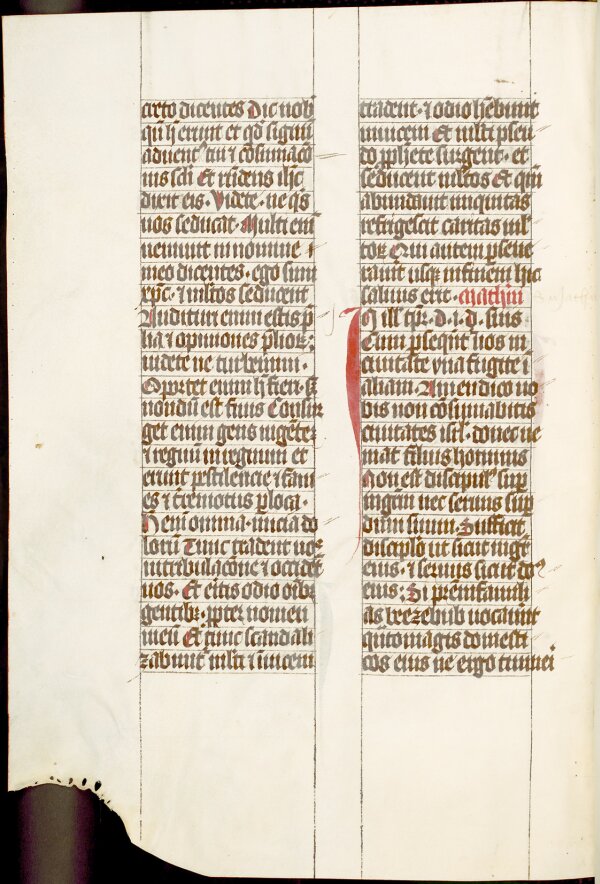 creto dicentes Dic nob
qn̄ h̄ erunt et qd̄ signū
aduentꝰ tui ⁊ cōsumacō
nis scłi Et rn̄dens ih̄c
dixit eis · Videte · ne qs
uos seducat · Multi eni
ueniunt in nomine
meo dicentes · ego sum
xp̄c · ⁊ multos seducent
Audituri enim estis p̄
lia ⁊ opiniones p̄lioꝝ ·
uidete ne turbemini ·
Oportet enim h̄ fieri · sꝫ
nondū est finis Consur
get enim gens in gētē ·
⁊ regnū in regnum et
erunt pestilencie ⁊ fam
es ⁊ t̄remotus p̄ loca ·
Hec om̄ia · inicia do
lorū Tunc tradent uos
in tribulac̄one ⁊ occidēt
uos · Et eritis odio om̄ibꝫ
gentibꝫ · ppter nomen
meū Et tunc scandali
zabunt mlti ⁊ inuicem
tradent · ⁊ odio hēbunt
inuicem Et mlti pseu
do pphete surgent · et
seducent mltos Et qm̄
abundauit iniquitas
refrigescet caritas ml
toꝝ Qui autem pseue
rauit usqꝫ in finem hic
saluus erit · Mathm
In ill tp̄r · d · i · d · suis ·
Cum p̄sequēt uos in
ciuitate vna fugite ī
aliam · Amen dico uo
bis non cōsumabitis
ciuitates isrl · donec ue
niat filius hominis
Non est discipulꝰ sup
mgrm nec seruus sup
dnm suum · Sufficit
discipło ut sit sicut mgr̄
eius · ⁊ seruus sicut dn̄s
eius · Si prēmfamili
as beezebub uocauīt
qn̄to magis domesti
cos eius ne ergo timuei